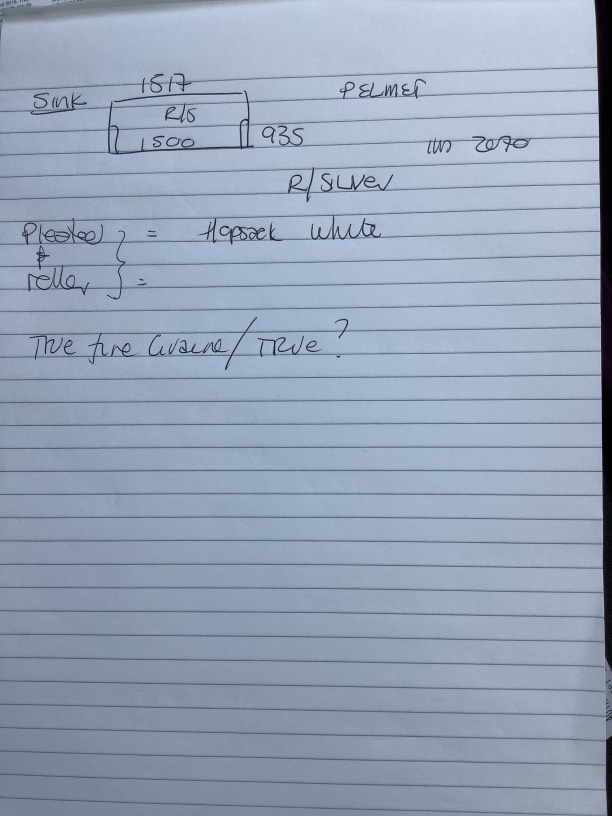 1517
Sink
PELMET
R/S
1500
935
2070
R/Silver
Pleated } = Hopsack White
&
roller } =
True fine / TRUE?